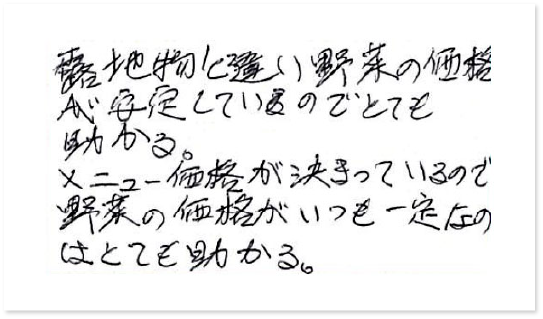 露地物と違い野菜の価格
が安定しているのでとても
助かる。
メニュー価格が決まっているので
野菜の価格がいつも一定なの
はとても助かる。